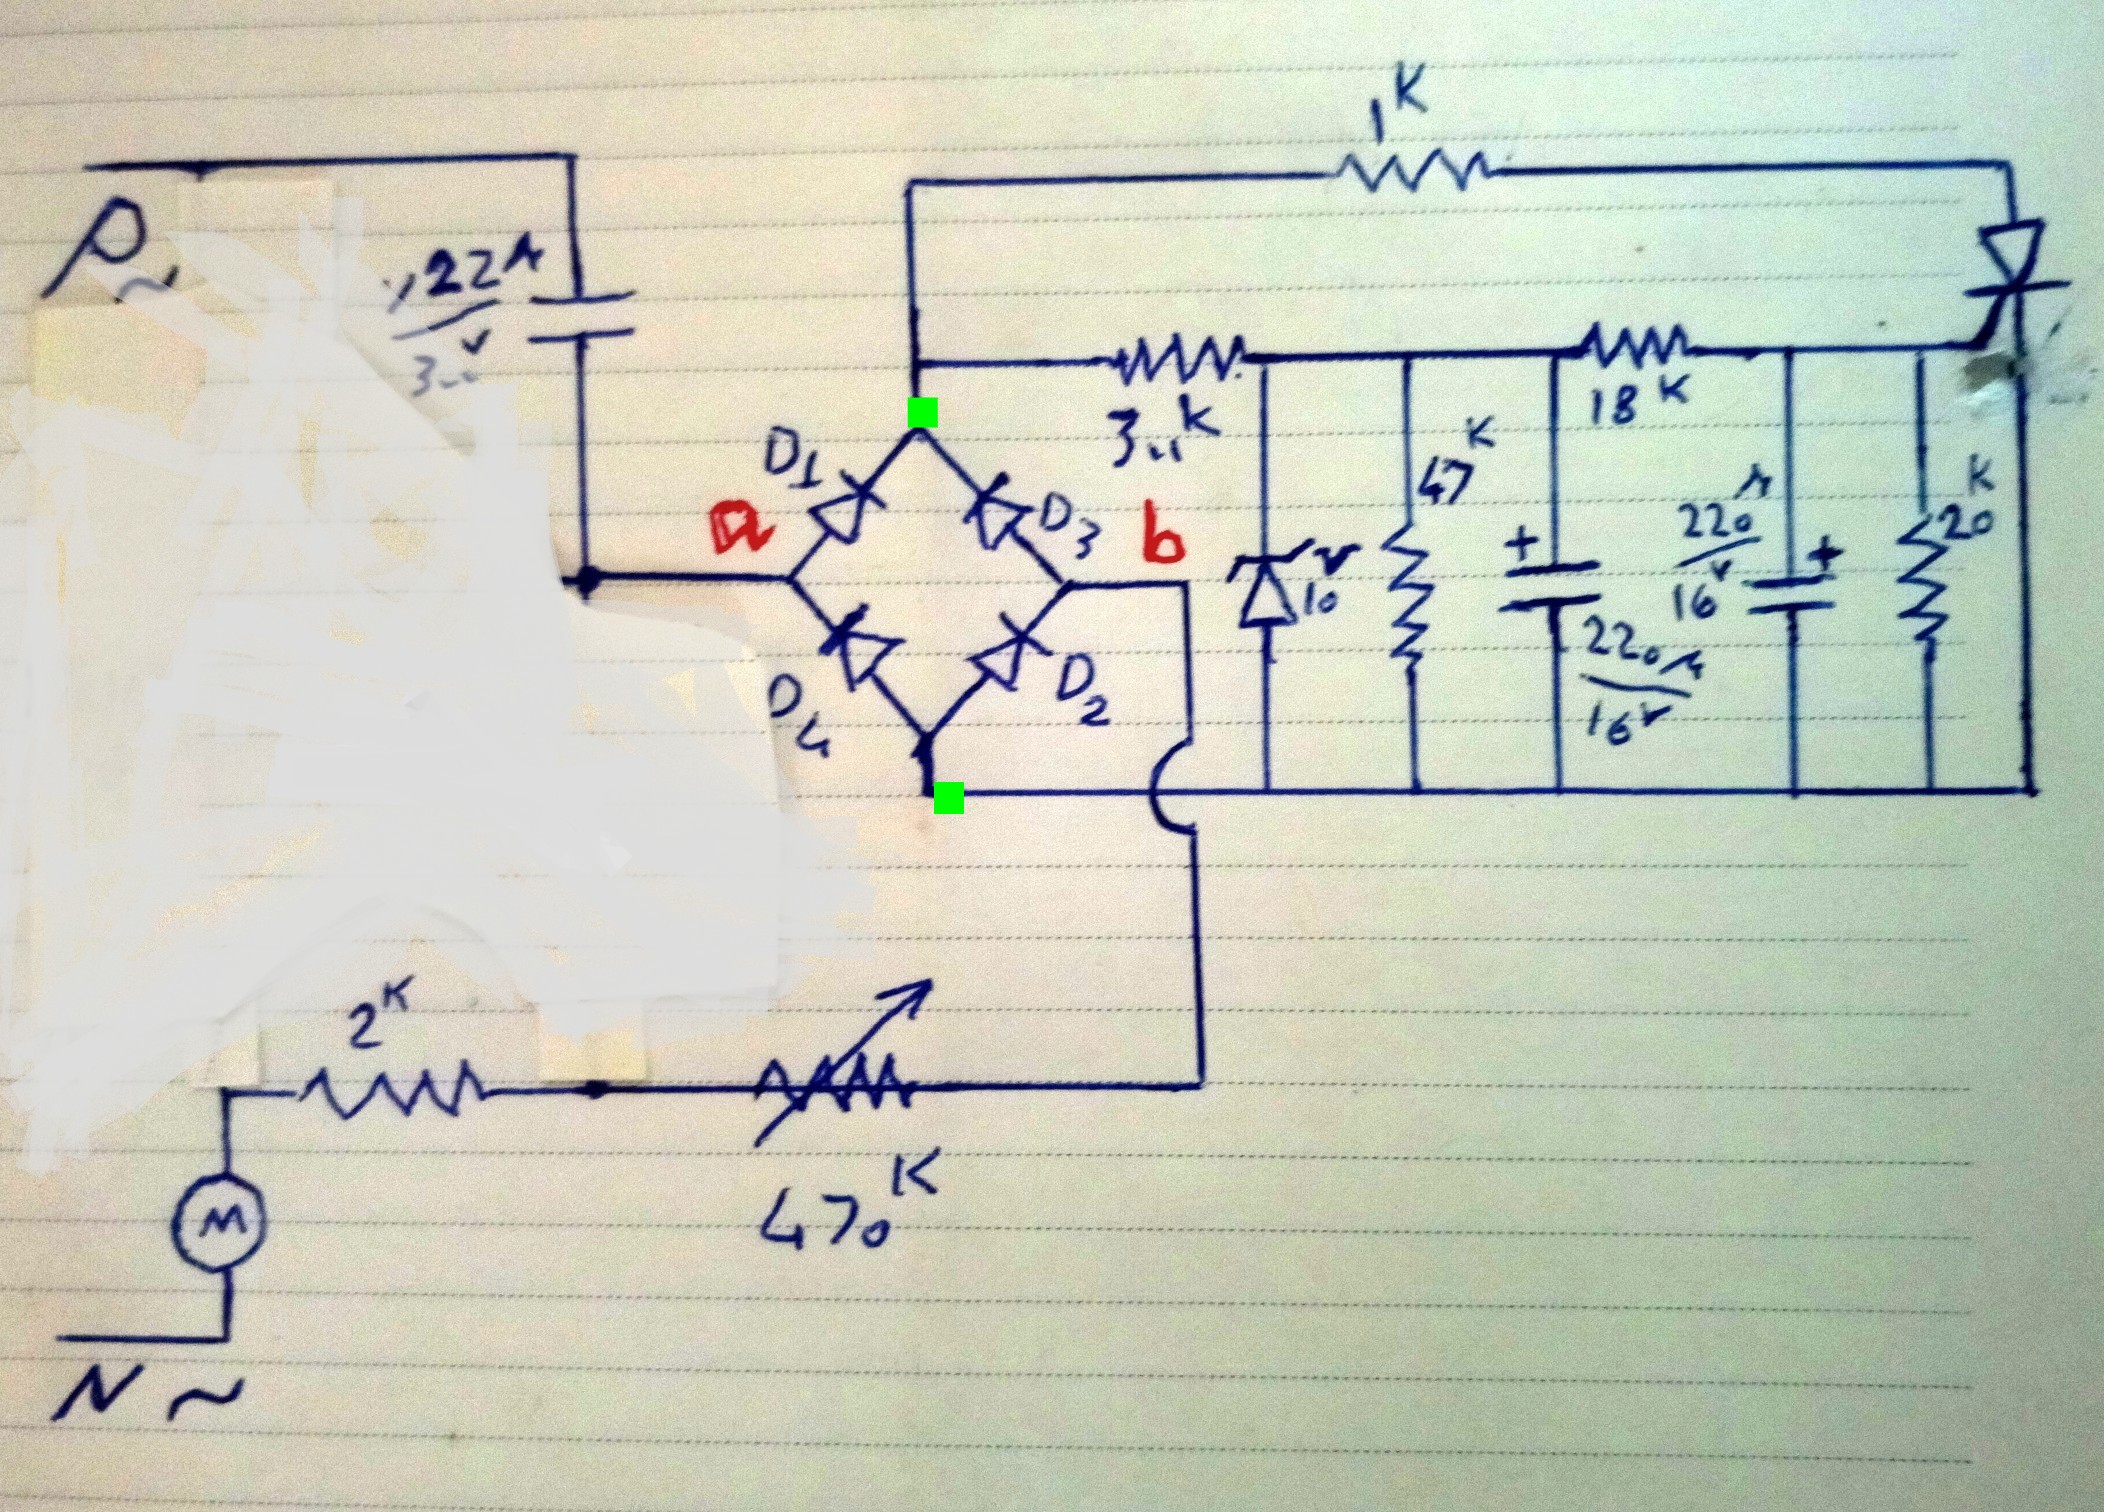 1K
P~
,22μ
3..v
3..K
18K
D1
D3
a
b
47K
v
10
+
220μ
16v
220μ
16v
+
20K
D4
D2
2K
470K
M
N ~